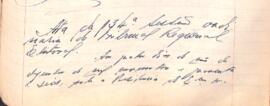 Ata da 134ª Sessão ord
inária do Tribunal Regional
Eleitoral.
Aos quatro dias do mês de
agosto de mil novecentos e
e seis, sob a Presidência